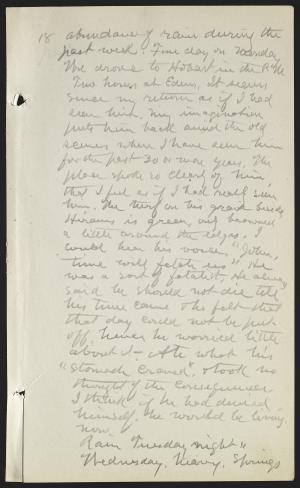 18 abundance of rain during the
past week. Fine day on Monday
We drove to Hobart in the P.M.
Two hours at Eden, It seems
since my return as if I had
seen him. My imagination
puts him back amid the old
scenes where I have seen him
for the past 30 or more years. The
place spoke so clearly of him,
that I feel as if I had really seen
him. The turf on his grave beside
Hirams is green, only browned
a little around the edges. I
could hear his voice, "John,
time will fetch us" He
was a sort of fatalist. He always
said he should not die till
his time came & he felt that
that day could not be put
off, hence he worried little
about it — Ate what his
"stomach craved" & took no
thought of the consequences
I think if he had denied
himself, he would be living
now.
Rain Tuesday night &
Wednesday. Heavy. Springs